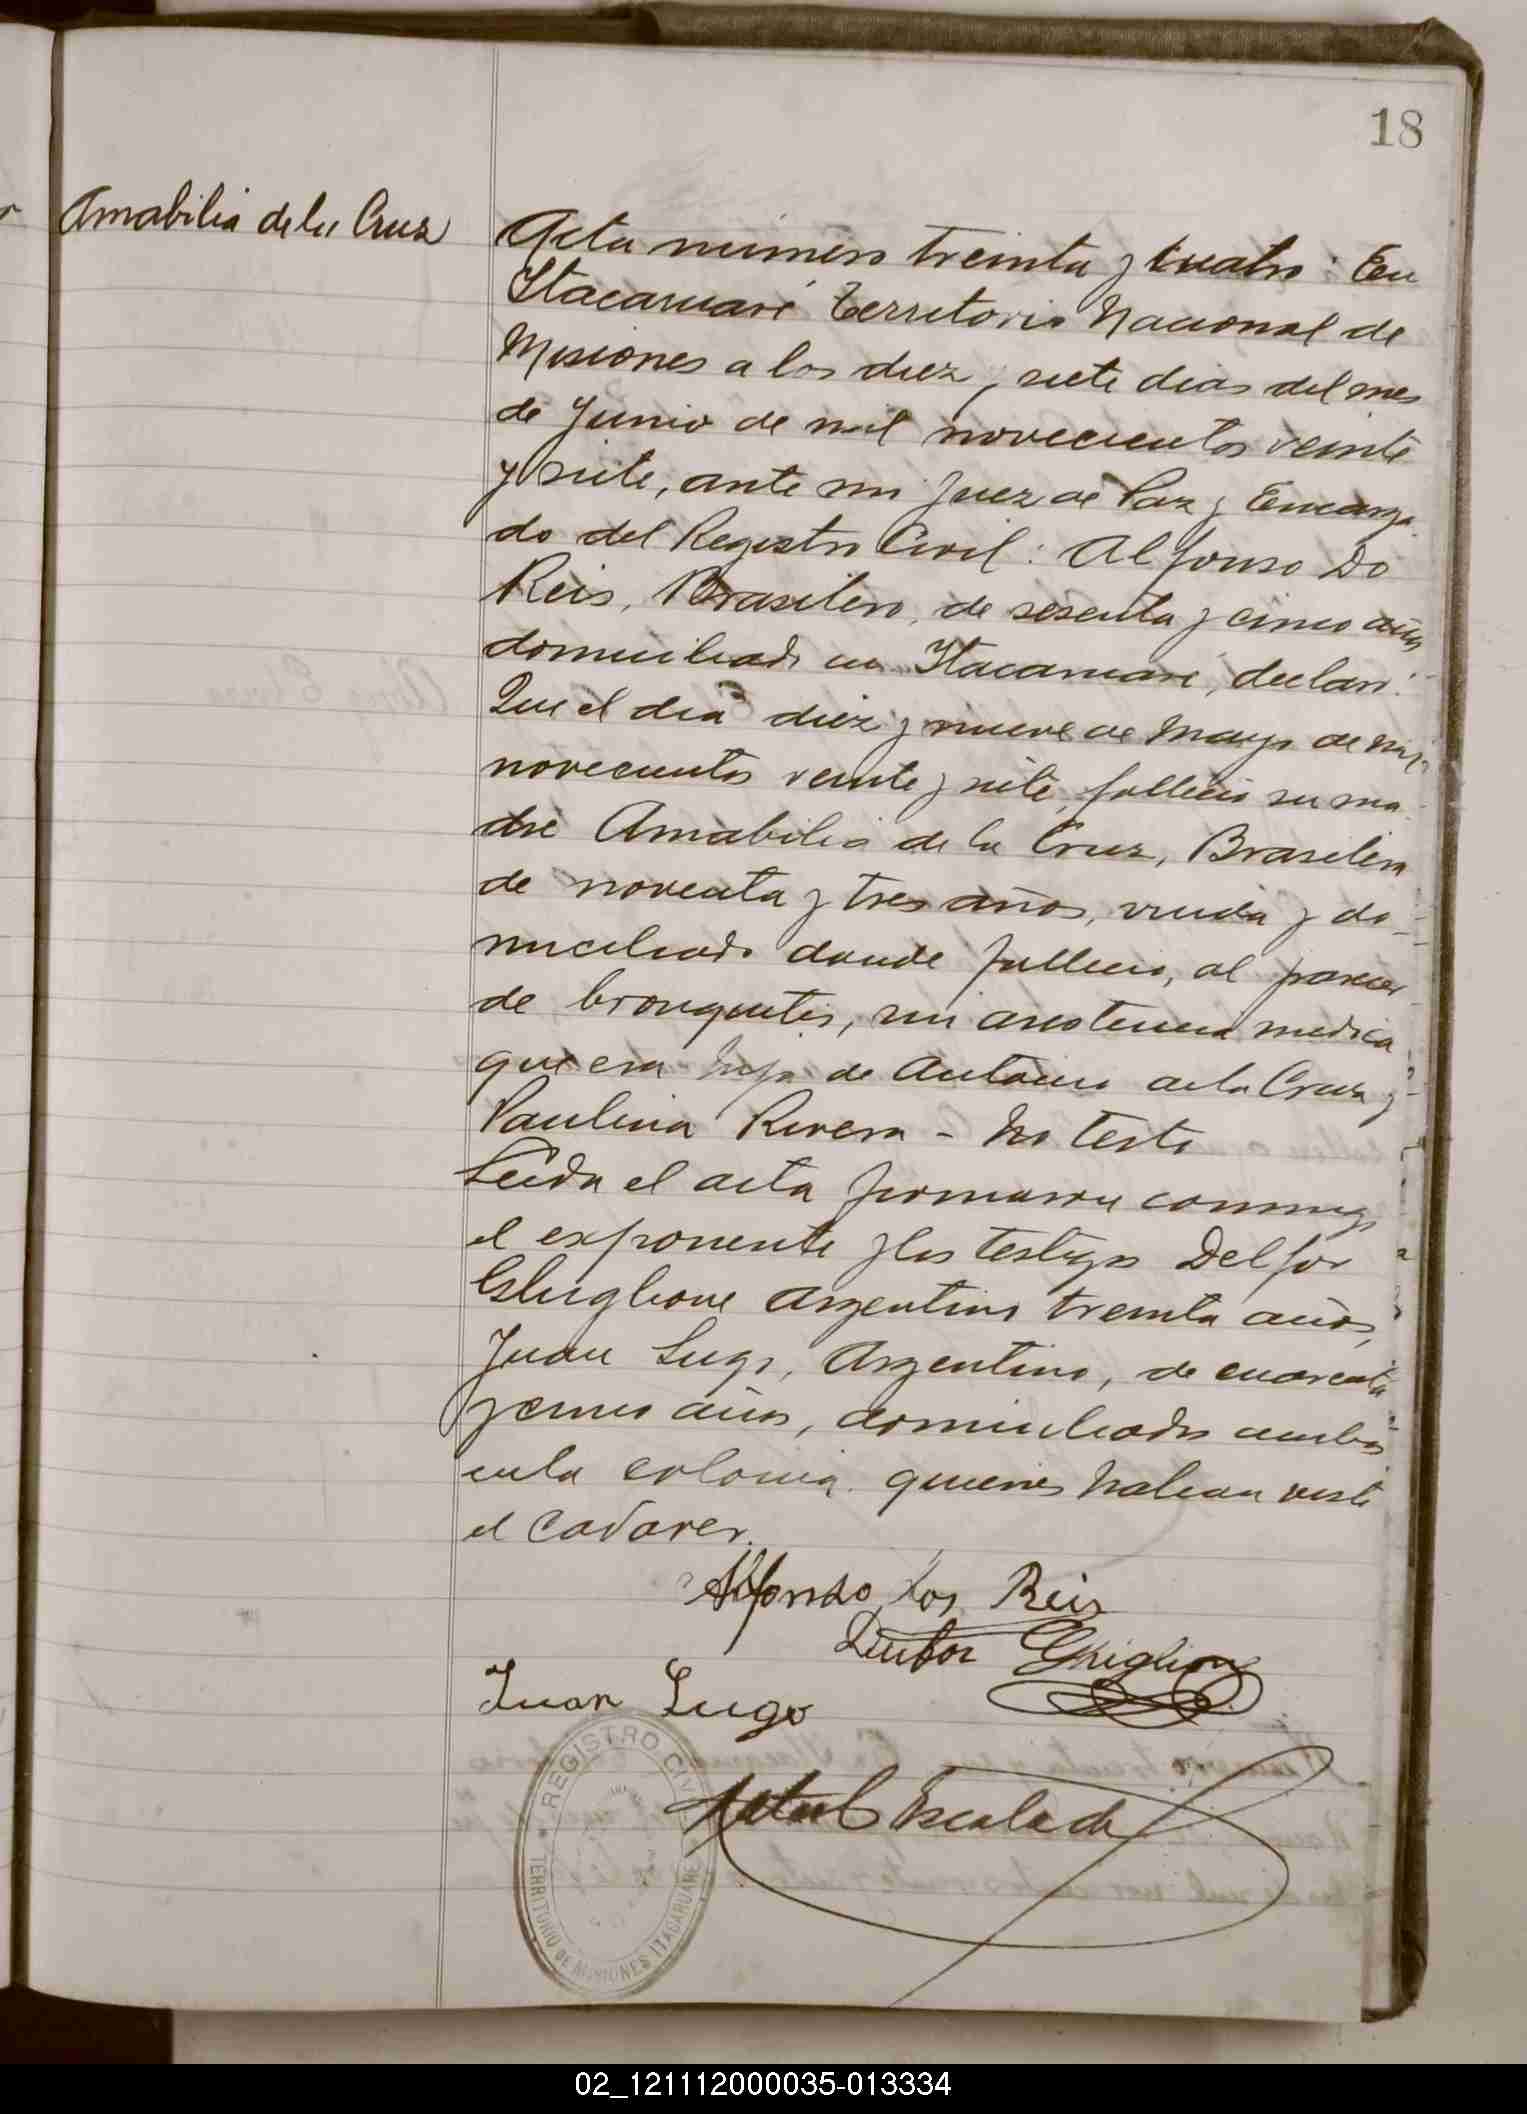 18
Amabilia de la Cruz
Acta número treinta y cuatro: En
Itacaruaré Territorio Nacional de
Misiones a los diez y siete dias del mes
de Junio de mil novecientos veinte
y siete, ante mi Juez de Paz y Encarga
do del Registro Civil: Alfonso Do
Reis, Brasilero, de sesenta y cinco años
domiciliado en Itacaruaré, declaró:
Que el dia diez y nueve de Mayo de mil
novecientos veinte y siete, falleció su ma
dre Amabilia de la Cruz, Brasilera
de noventa y tres años, viuda y do
miciliado donde falleció, al parecer
de bronquitis, sin asistencia medica
que era hija de Antonio de la Cruz y
Paulina Rivera - No testó
Leida el acta firmaron conmigo
el exponente y los testigos Delfor
Ghiglione Argentino treinta años,
Juan Lugo, Argentino, de cuarenta
y cinco años, domiciliados ambos
en la colonia quienes habian visto
el cadaver.
Alfonso dos Reis
Ghiglione
Juan Lugo
Escalada
REGISTRO CIVIL
TERRITORIO DE MISIONES ITACARUARE
02_121112000035-013334